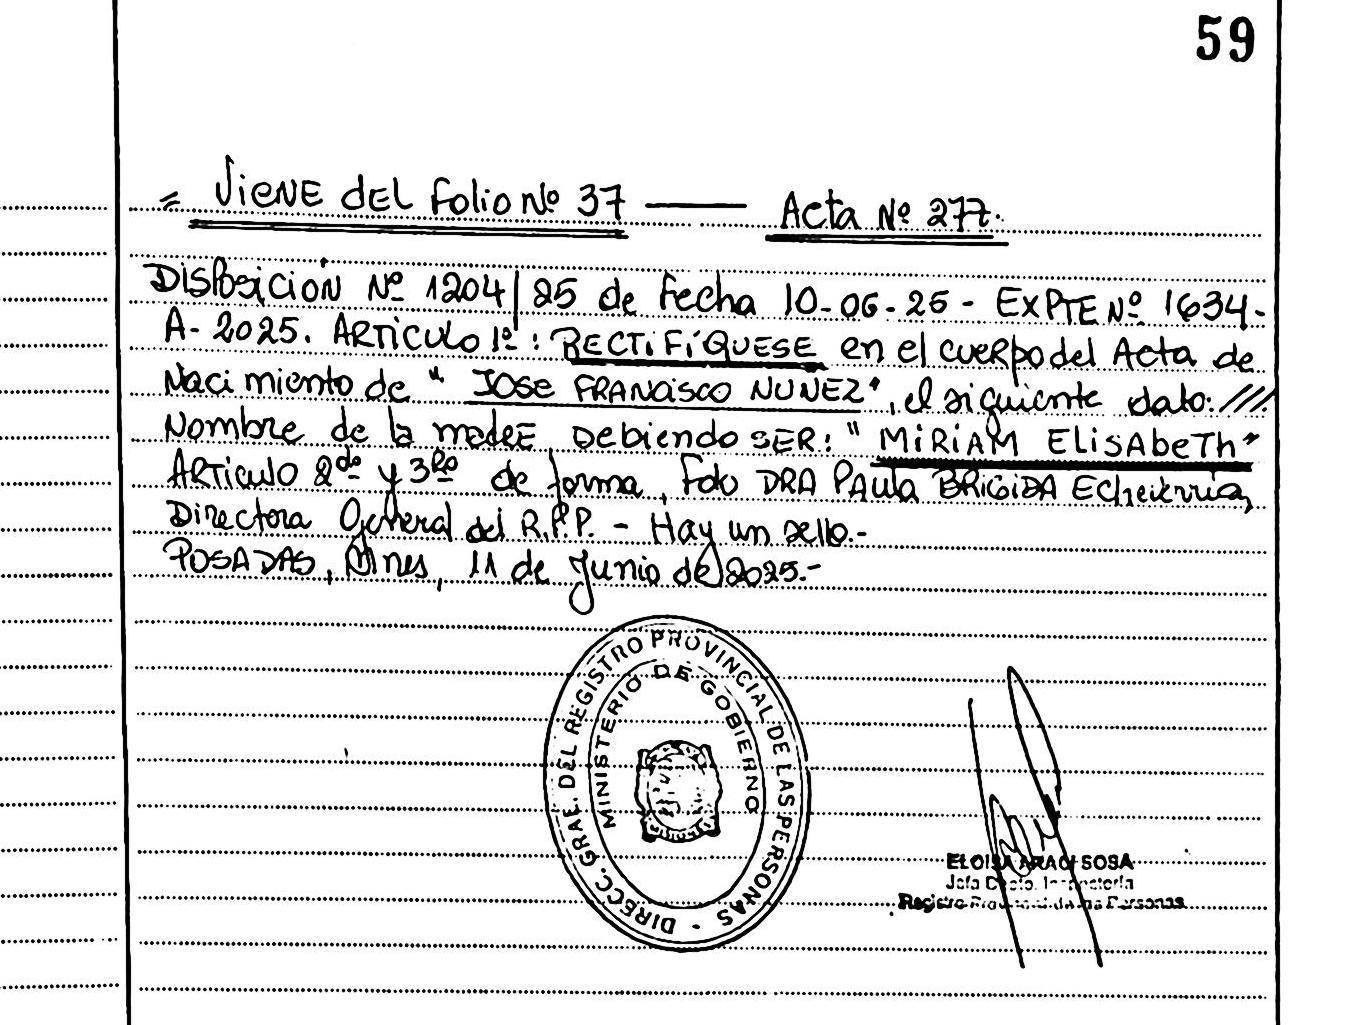 59
= Viene del Folio Nº 37 —— Acta Nº 277.
Disposición Nº 1204/25 de fecha 10-06-25 - EXPTE Nº 1634-
A-2025. ARTiculo 1º: RECTiFíQUESE en el cuerpo del Acta de
Nacimiento de "JOSE FRANCISCO NUNEZ", el siguiente dato: ////
Nombre de la madRE, Debiendo SER: "MiRiAM ElisAbeTh"
ARTiculo 2do y 3Ro de forma, Fdo DRA PAula BRIGiDA Echeverria,
Directora General del R.P.P. - Hay un sello.-
POSADAS, Mnes, 11 de Junio de 2025.-
DIRECC. GRAL. DEL REGISTRO PROVINCIAL DE LAS PERSONAS -
MINISTERIO DE GOBIERNO
ELOISA ARACI SOSA
Jefa Dpto. Inspectoría
Registro Provincial de las Personas